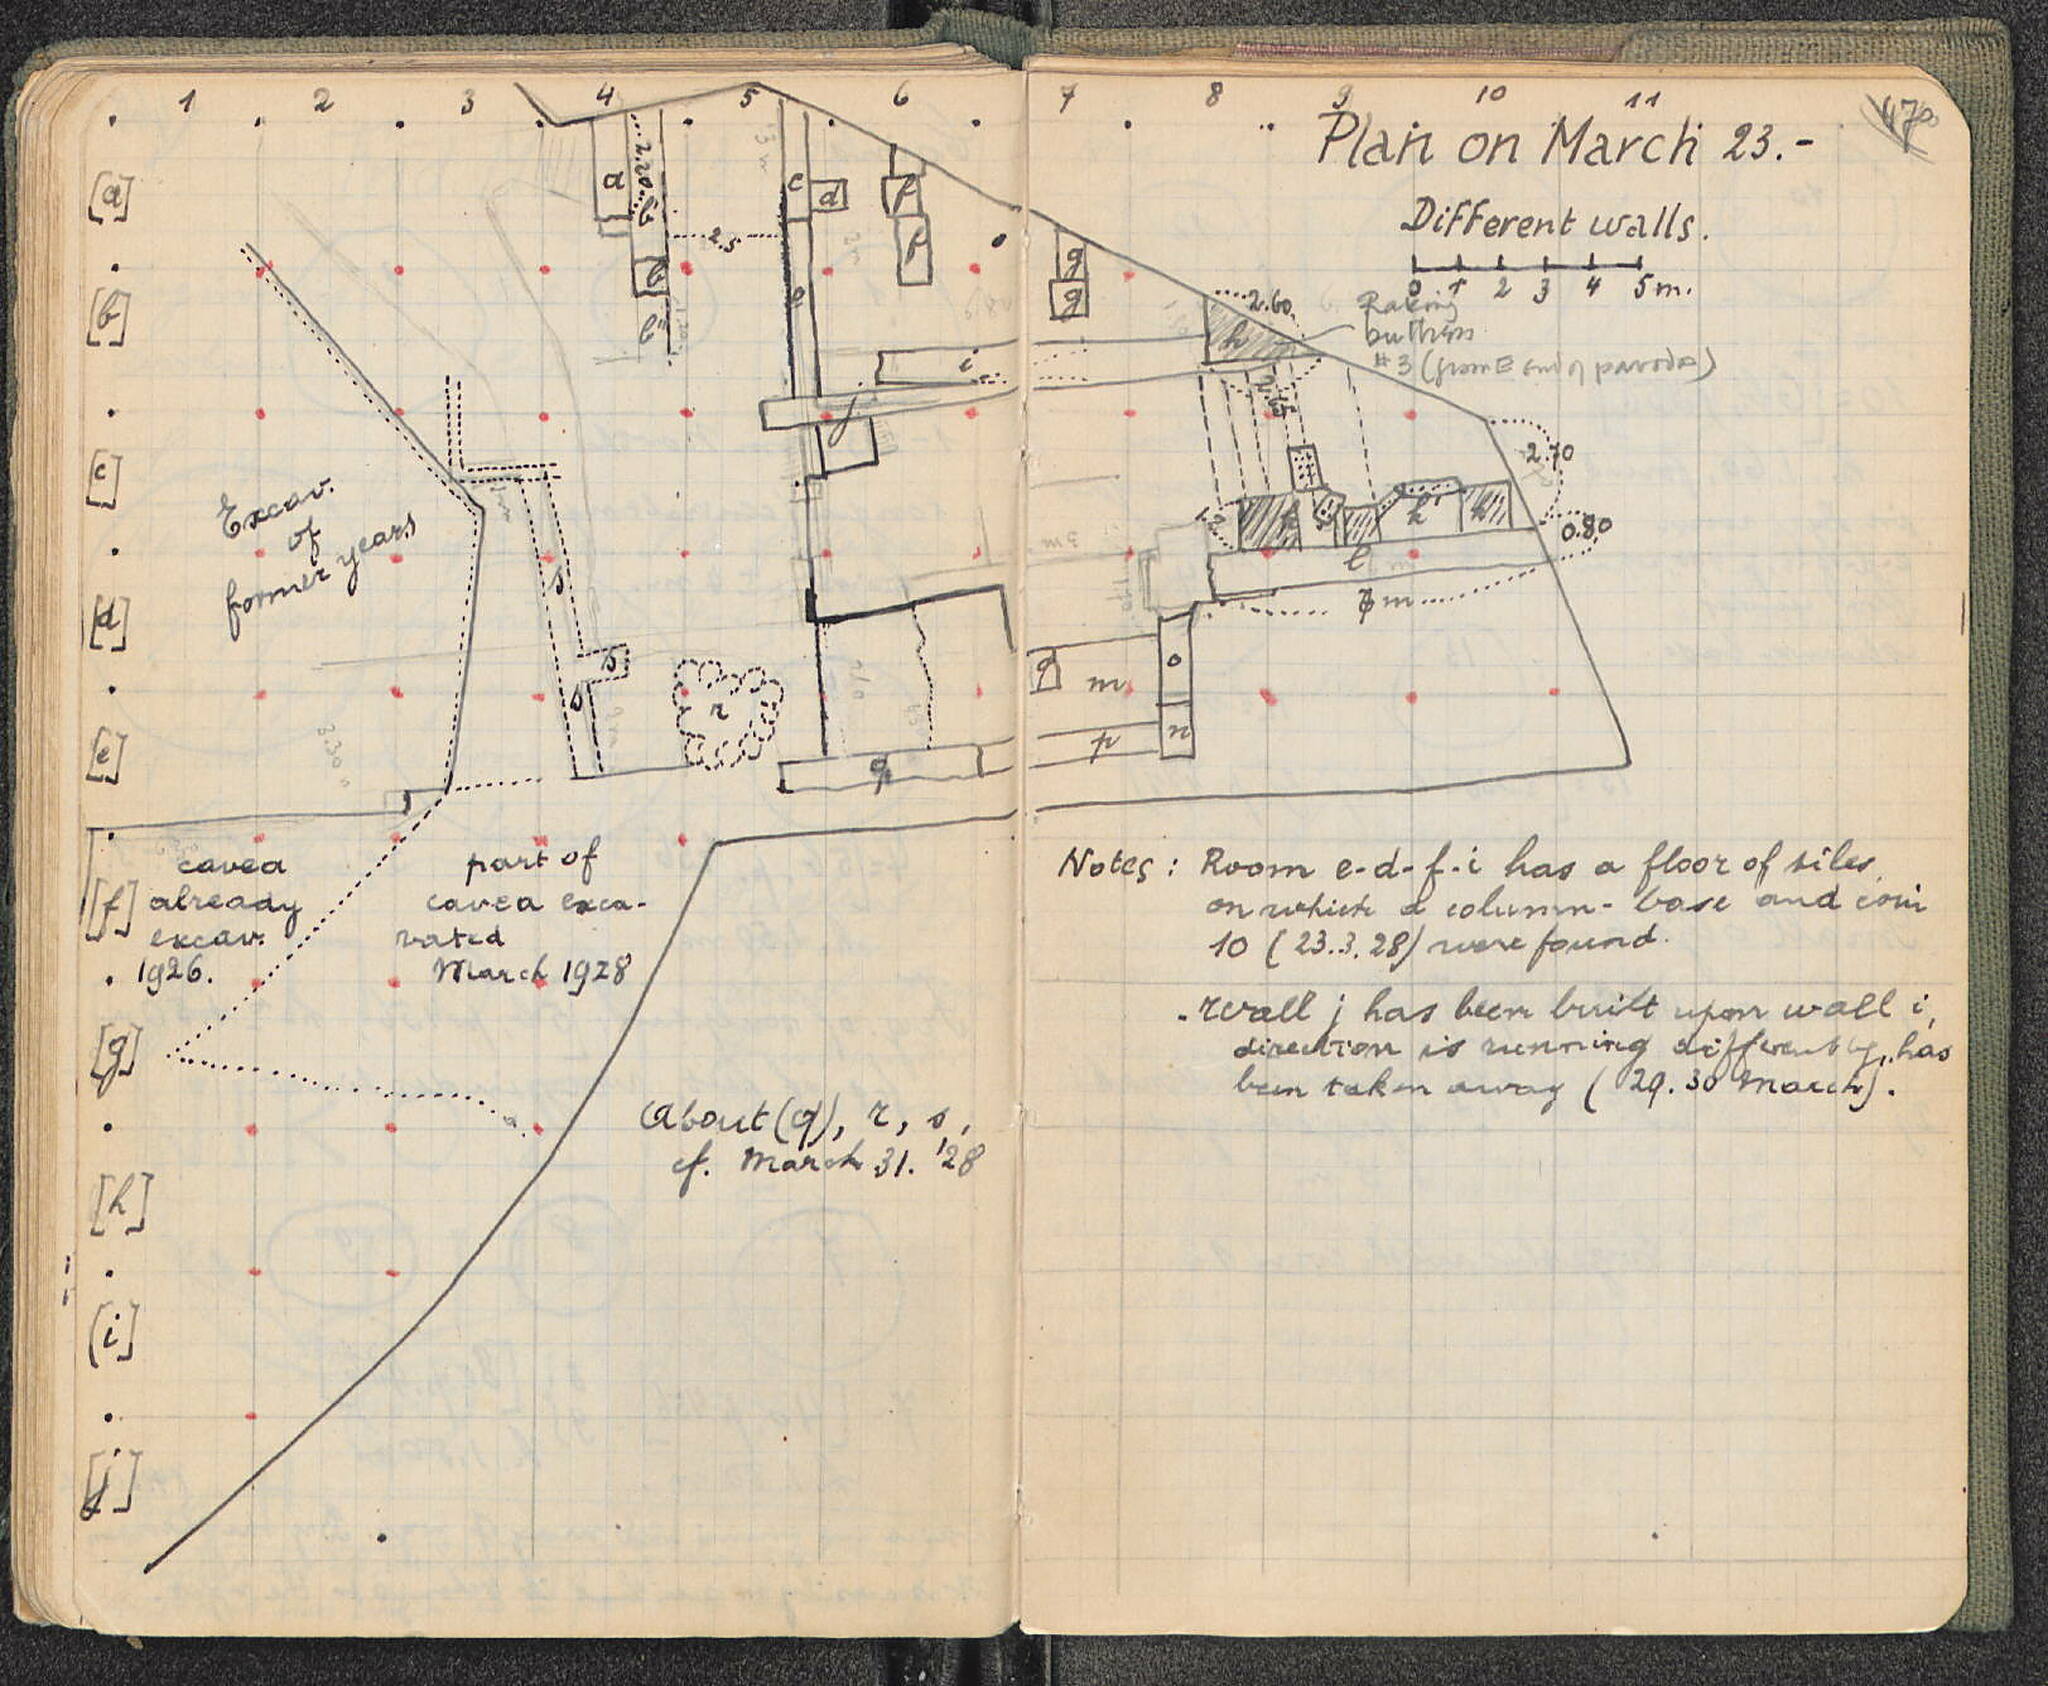 1 2 3 4 5 6 7 8 9 10 11
Plan on March 23.-
Different walls.
0 1 2 3 4 5 m.
[a]
[b]
[c]
[d]
[e]
[f]
[g]
[h]
[i]
[j]
a
2.20
b
b
b"
2.5
e
d
e
f
f
g
g
i
j
2.60
h
Raking
buttress
#3 (from E end of parodos)
2.70
0.80
k'
l
7 m
3 m.
Excav.
of
former years
s
s
s
r
q
q
m
o
n
p
3.30
cavea
already
excav.
1926.
part of
cavea exca-
vated
March 1928
About (q), r, s,
cf. March 31. '28
Notes: Room e-d-f-i has a floor of tiles,
on which a column-base and coin
10 (23.3.28) were found.
- Wall j has been built upon wall i,
direction is running differently, has
been taken away (29. 30 March).